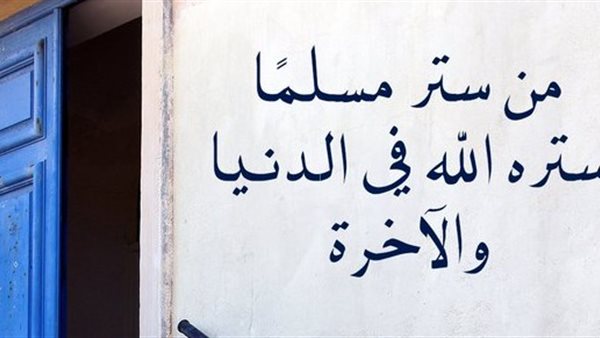 من ستر مسلمًا
ستره الله في الدنيا
والآخرة